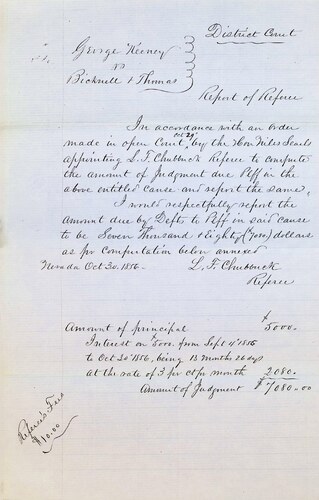 District Court
George Keeney
vs
Bicknell & Thomas
Report of Referee
In accordance with an order
made in open Court, Oct 29th, by the Hon Niles Searls
appointing L. F. Chubbuck Referee to compute
the amount of Judgment due Plff in the
above entitled cause and report the same,
I would respectfully report the
Amount due by Defts to Plff in said cause
to be Seven Thousand & Eighty (7080) dollars
as pr computation below annexed
Nevada Oct 30. 1856.
L. F. Chubbuck
Referee
Amount of principal $5000.
Interest on $5000. from Sept 4th 1855
to Oct 30th 1856, being 13 months 26 days
at the rate of 3 pr ct pr month 2080.
Amount of Judgment $7080.00
Referee's Fees
$10.00